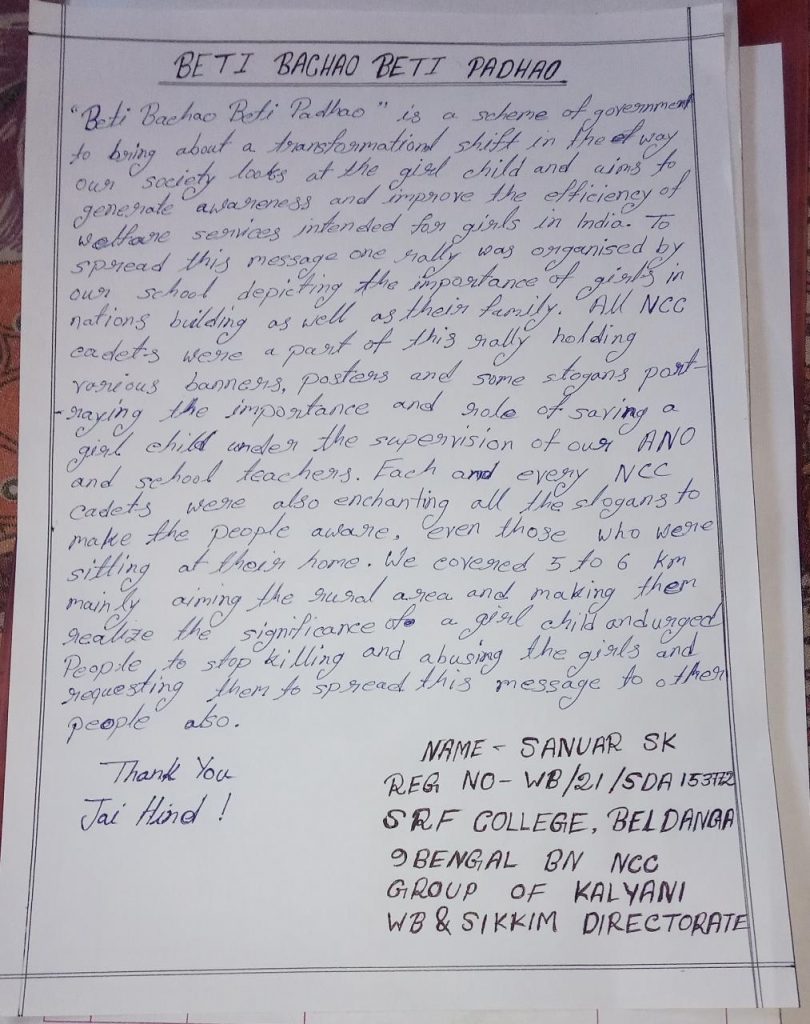 BETI BACHAO BETI PADHAO
"Beti Bachao Beti Padhao" is a scheme of government
to bring about a transformational shift in the way
our society looks at the girl child and aims to
generate awareness and improve the efficiency of
welfare services intended for girls in India. To
spread this message one rally was organised by
our school depicting the importance of girls in
nations building as well as their family. All NCC
cadets were a part of this rally holding
various banners, posters and some slogans port-
-raying the importance and role of saving a
girl child under the supervision of our ANO
and school teachers. Each and every NCC
cadets were also enchanting all the slogans to
make the people aware, even those who were
sitting at their home. We covered 5 to 6 km
mainly aiming the rural area and making them
realize the significance of a girl child and urged
People to stop killing and abusing the girls and
requesting them to spread this message to other
people also.
Thank You
Jai Hind !
NAME - SANUAR SK
REG NO - WB/21/SDA
SRF COLLEGE, BELDANGA
9 BENGAL BN NCC
GROUP OF KALYANI
WB & SIKKIM DIRECTORATE